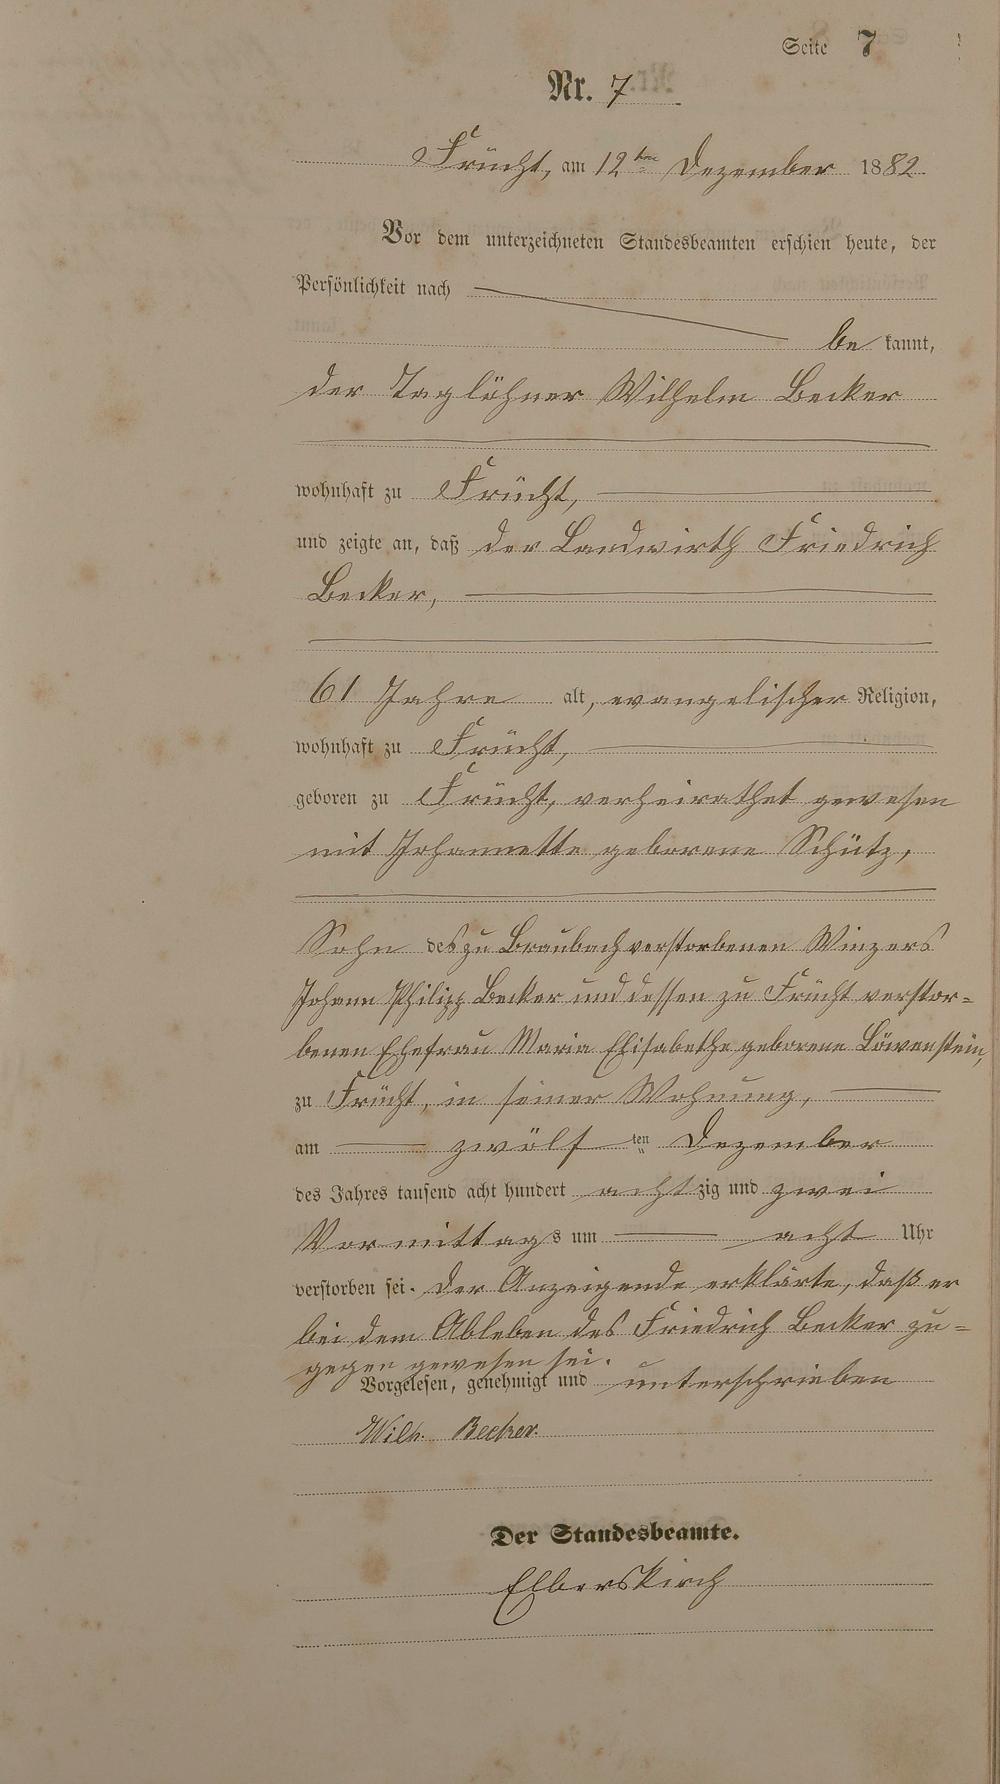 Seite 7
Nr. 7
Frücht, am 12ten Dezember 1882
Vor dem unterzeichneten Standesbeamten erschien heute, der
Persönlichkeit nach
be kannt,
der Taglöhner Wilhelm Becker
wohnhaft zu Frücht,
und zeigte an, daß der Landwirth Friedrich
Becker,
61 Jahre alt, evangelischer Religion,
wohnhaft zu Frücht,
geboren zu Frücht, verheirathet gewesen
mit Johannette geborene Schütz,
Sohn des zu Braubach verstorbenen Winzers
Johann Philipp Becker und dessen zu Frücht verstor-
benen Ehefrau Maria Elisabethe geborene Löwenstein,
zu Frücht, in seiner Wohnung,
am zwölf ten Dezember
des Jahres tausend acht hundert achtzig und zwei
Vormittags um acht Uhr
verstorben sei. Der Anzeigende erklärte, daß er
bei dem Ableben des Friedrich Becker zu-
gegen gewesen sei.
Vorgelesen, genehmigt und unterschrieben
Wilh. Becker.
Der Standesbeamte.
Elberskirch